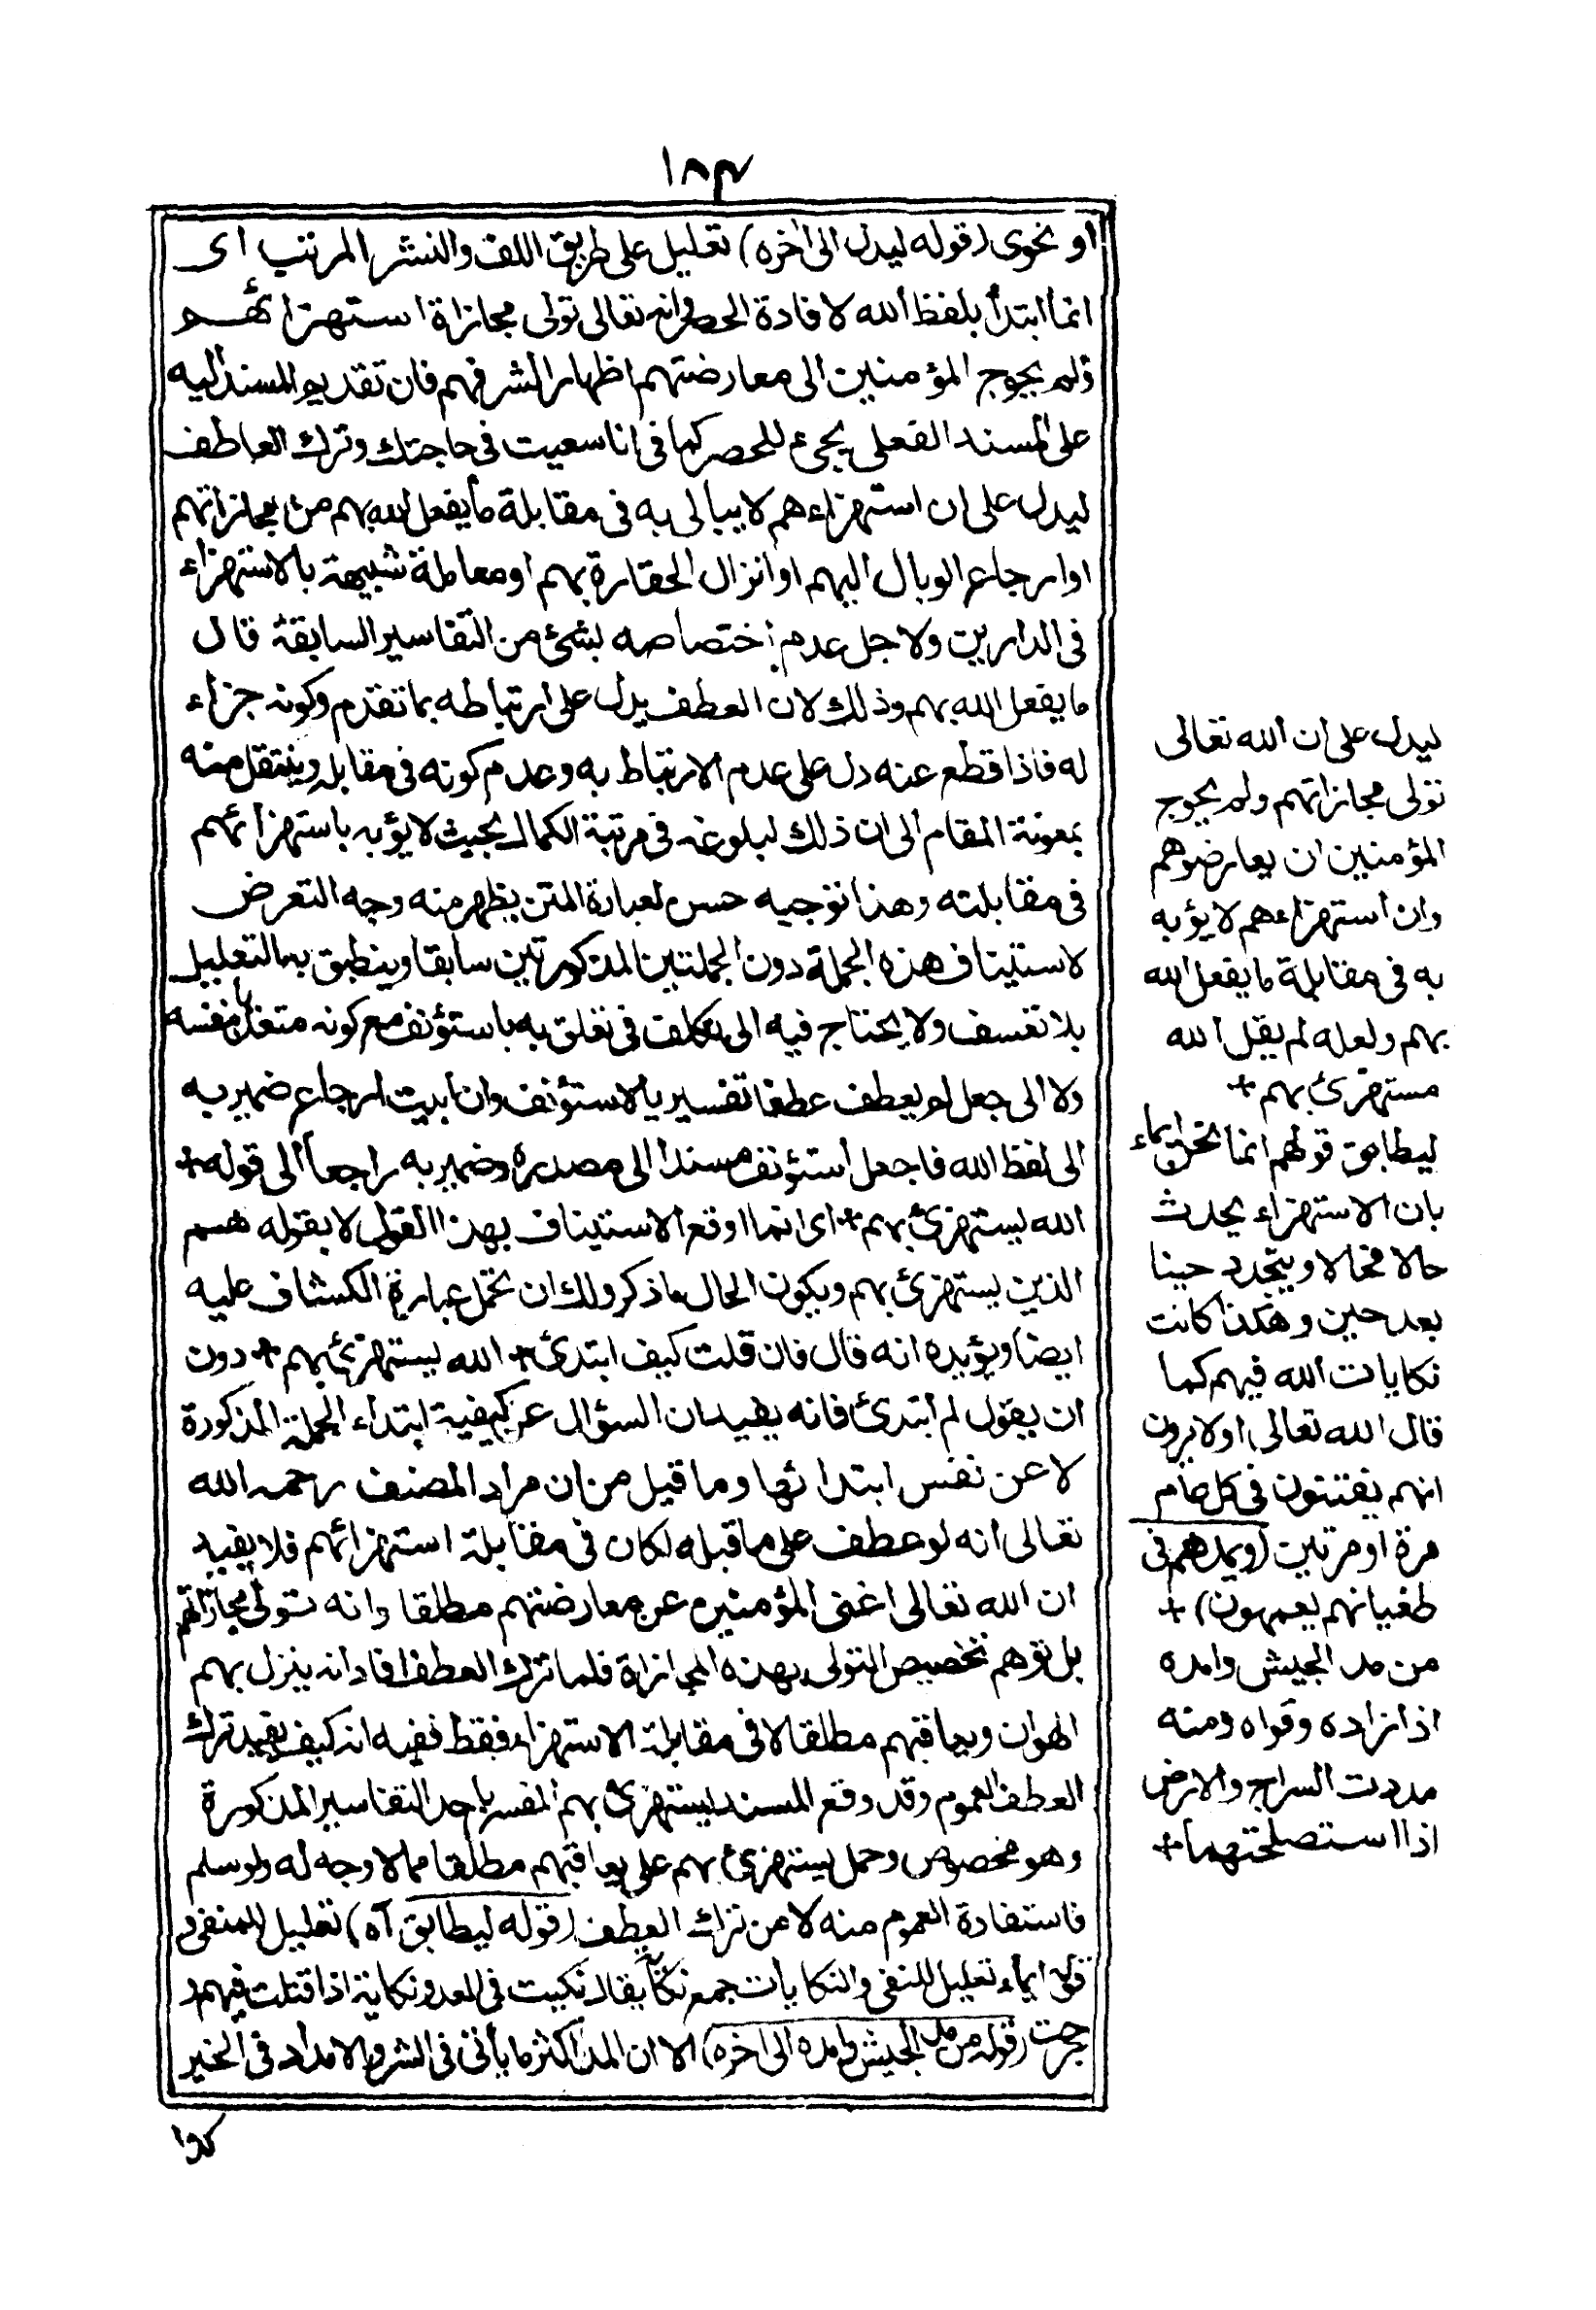 ١٨٤
او نحوى (قوله ليدل الى اخره) تعليل على طريق اللف والنشر المرتب اى
انما ابتدأ بلفظ الله لافادة الحصر وانه تعالى تولى مجازاة استهزائهم
ولم يحوج المؤمنين الى معارضتهم اظهار الشرفهم فان تقديم المسند اليه
على المسند الفعلى يجىء للحصر كما فى انا سعيت فى حاجتك وترك العاطف
ليدل على ان استهزاءهم لا يبالى به فى مقابلة ما يفعل الله بهم من مجازاتهم
او ارجاع الوبال اليهم او انزال الحقارة بهم او معاملة شبيهة بالاستهزاء
فى الدارين ولاجل عدم اختصاصه بشئ من التفاسير السابقة قال
ما يفعل الله بهم وذلك لان العطف يدل على ارتباطه بما تقدم وكونه جزاء
له فاذا قطع عنه دل على عدم الارتباط به وعدم كونه فى مقابله وينتقل منه
بمعونة المقام الى ان ذلك لبلوغه فى مرتبة الكمال بحيث لا يؤبه باستهزائهم
فى مقابلته وهذا توجيه حسن لعبارة المتن يظهر منه وجه التعرض
لاستيناف هذه الجملة دون الجملتين المذكورتين سابقا وينطبق بها التعليل
بلا تعسف ولا يحتاج فيه الى تكلف فى تعلق به باستؤنف مع كونه متعديا بنفسه
ولا الى جعل لم يعطف عطفا تفسيريا لاستؤنف وان ابيت ارجاع ضمير به
الى لفظ الله فاجعل استؤنف مسندا الى مصدره وضمير به راجعا الى قوله+
الله يستهزئ بهم+ اى انما اوقع الاستيناف بهذا القول لا بقوله هم
الذين يستهزئ بهم ويكون الحال ما ذكر ولك ان تحمل عبارة الكشاف عليه
ايضا ويؤيده انه قال فان قلت كيف ابتدئ+ الله يستهزئ بهم+ دون
ان يقول لم ابتدئ فانه يفيد ان السؤال عن كيفية ابتداء الجملة المذكورة
لا عن نفس ابتدائها وما قيل من ان مراد المصنف رحمه الله
تعالى انه لو عطف على ما قبله لكان فى مقابلة استهزائهم فلا يفيد
ان الله تعالى اغنى المؤمنين عن معارضتهم مطلقا وانه تولى مجازاتهم
بل توهم تخصيص التولى بهذه المجازاة فلما ترك العطف افاد انه ينزل بهم
الهوان ويعاقبهم مطلقا لا فى مقابلة الاستهزاء فقط ففيه انه كيف يفيد ترك
العطف العموم وقد وقع المسند ليستهزئ بهم المفسر باحد التفاسير المذكورة
وهو مخصوص وحمل يستهزئ بهم على يعاقبهم مطلقا مما لا وجه له ولو سلم
فاستفادة العموم منه لا من ترك العطف (قوله ليطابق آه) تعليل للمنفى و
قوله ايماء تعليل للنفى والنكايات جمع نكاية يقال نكيت فى العدو نكاية اذا قتلت فيهم و
جرحت (قوله من مد الجيش وامده الى اخره) الا ان المد اكثر ما يأتى فى الشر والامداد فى الخير
ليدل على ان الله تعالى
تولى مجازاتهم ولم يحوج
المؤمنين ان يعارضوهم
وان استهزاءهم لا يؤبه
به فى مقابلة ما يفعل الله
بهم ولعله لم يقل الله
مستهزئ بهم+
ليطابق قولهم انما نحن ايماء
بان الاستهزاء يحدث
حالا فحالا ويتجدد حينا
بعد حين وهكذا كانت
نكايات الله فيهم كما
قال الله تعالى اولا يرون
انهم يفتنون فى كل عام
مرة او مرتين (ويمدهم فى
طغيانهم يعمهون)+
من مد الجيش وامده
اذا زاده وقواه ومنه
مددت السراج والارض
اذا استصلحتهما+